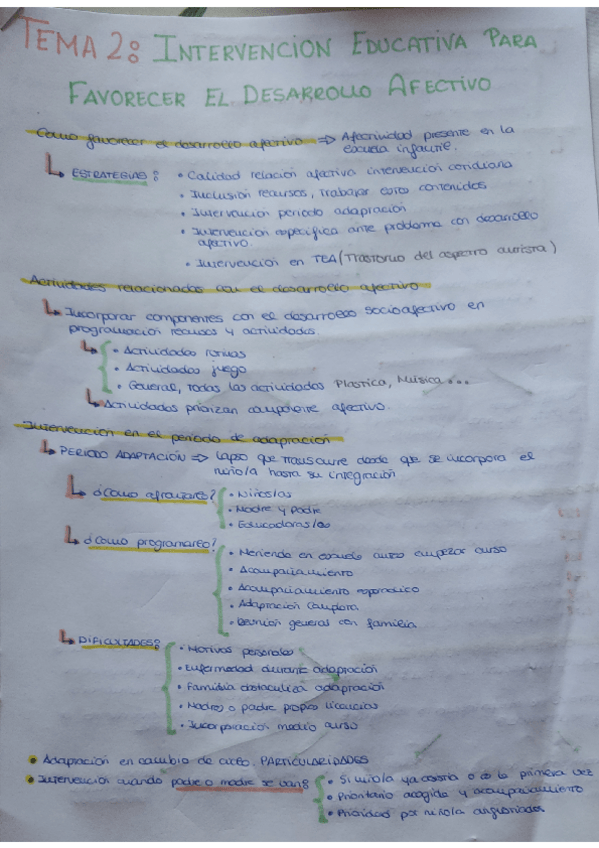 TEMA 2: INTERVENCION EDUCATIVA PARA
FAVORECER EL DESARROLLO AFECTIVO
Como favorecer el desarrollo afectivo => Afectividad presente en la
escuela infantil.
ESTRATEGIAS: • Calidad relación afectiva intervención
• Inclusión recursos, trabajar estos contenidos
• Intervencion periodo adapración
• Intervencion especifica ante problema con desarrollo
afectivo.
• Intervención en TEA (Trastorno del espectro autista)
Actividades relacionadas con el desarrollo afectivo
Incorporar componentes con el desarrollo socioafectivo en
programación recursos y actividades.
• Actividades rutinas
• Actividades juego
• General, todas las actividades Plastica, Música...
Actividades priorizan componente afectivo.
Intervención en el periodo de adapración
PERIODO ADAPTACIÓN => Lapso que transcurre desde que se incorpora el
niño/a hasta su integración
¿Como afrontarlo? • Niños/as
• Madre y Padre
• Educadoras/es
¿Como programarlo? • Merienda en escuela antes empezar curso
• Acompañamiento
• Acompañamiento esporadico
• Adaptación
• Reunión general con familia
DIFICULTADES: • Motivos personales
• Enfermedad durante adaptación
• Familia obstaculiza adaptación
• Madres o padre propias
• Incorporación medio curso
• Adaptación en cambio de PARTICULARIDADES
• Intervención cuando padre o madre se van: • Si niño/a ya asistia o es la primera vez
• Prioritario acogida y acompañamiento
• Prioridad por niño/a angustiados